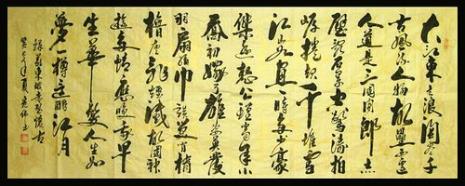 大江東去浪淘盡千
古風流人物故壘西邊
人道是三國周郎赤
壁亂石驚濤拍
岸捲起千堆雪
江山如畫一時多少豪
傑遙想公瑾當年小
喬初嫁了雄姿英發
羽扇綸巾談笑間檣
櫓灰飛煙滅故國神
遊多情應笑我早
生華髮人生如
夢一樽還酹江月
錄蘇東坡赤壁懷古
年夏書